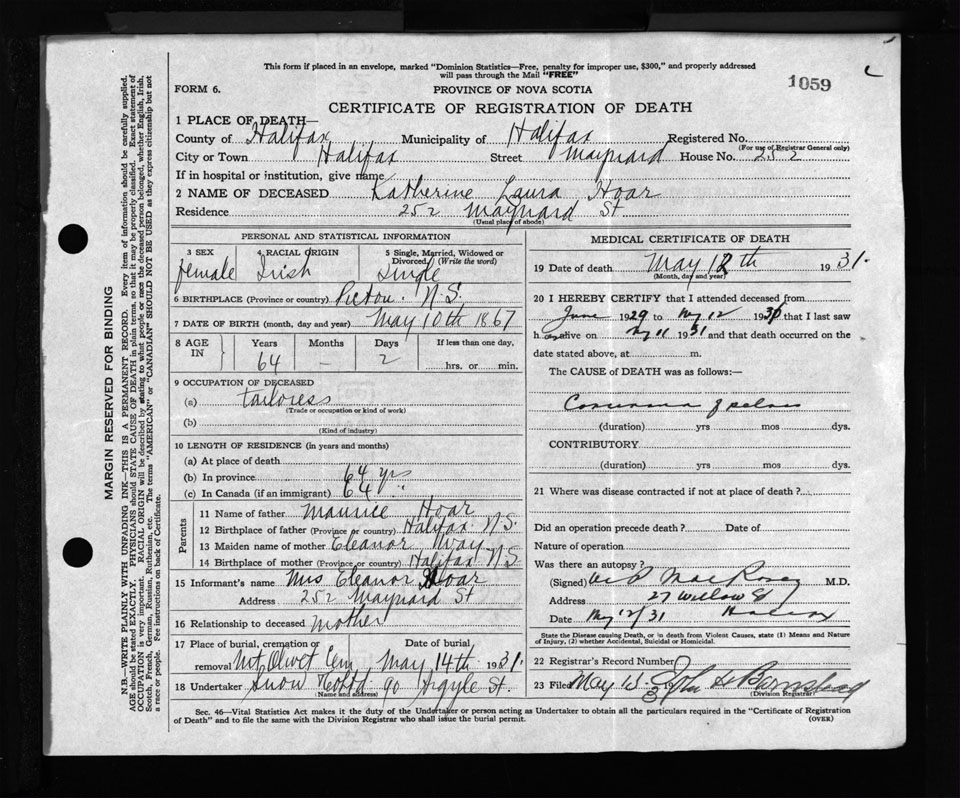 This form if placed in an envelope, marked "Dominion Statistics—Free, penalty for improper use, $300," and properly addressed
will pass through the Mail "FREE"
1059
FORM 6.
PROVINCE OF NOVA SCOTIA
CERTIFICATE OF REGISTRATION OF DEATH
1 PLACE OF DEATH—
County of Halifax Municipality of Halifax Registered No.
(For use of Registrar General only)
City or Town Halifax Street Maynard House No. 252
If in hospital or institution, give name
2 NAME OF DECEASED Katherine Laura Hoar
Residence 252 Maynard St
(Usual place of abode)
PERSONAL AND STATISTICAL INFORMATION
3 SEX 4 RACIAL ORIGIN 5 Single, Married, Widowed or Divorced. (Write the word)
female Irish single
6 BIRTHPLACE (Province or country) Pictou. N.S.
7 DATE OF BIRTH (month, day and year) May 10th 1867
8 AGE IN Years Months Days If less than one day,
64 — 2 hrs. or min.
9 OCCUPATION OF DECEASED
(a) tailoress
(Trade or occupation or kind of work)
(b)
(Kind of industry)
10 LENGTH OF RESIDENCE (in years and months)
(a) At place of death
(b) In province 64 yrs
(c) In Canada (if an immigrant) 64 "
Parents
11 Name of father Maurice Hoar
12 Birthplace of father (Province or country) Halifax N.S.
13 Maiden name of mother Eleanor Way
14 Birthplace of mother (Province or country) Halifax N.S
15 Informant's name Mrs Eleanor Hoar
Address 252 Maynard St
16 Relationship to deceased mother
17 Place of burial, cremation or removal Mt Olivet Cem Date of burial, May 14th 1931.
18 Undertaker Snow 90 Argyle St.
(Name and address)
MEDICAL CERTIFICATE OF DEATH
19 Date of death May 12th 1931.
(Month, day and year)
20 I HEREBY CERTIFY that I attended deceased from
June 1929 to My 12 1931 that I last saw
h alive on My 11 1931 and that death occurred on the
date stated above, at m.
The CAUSE of DEATH was as follows:—
of pelvis
(duration) yrs mos dys.
CONTRIBUTORY
(duration) yrs mos dys.
21 Where was disease contracted if not at place of death?
Did an operation precede death? Date of
Nature of operation
Was there an autopsy?
(Signed) M.D.
Address 27 Willow St
Date My 12/31 Halifax
State the Disease causing Death, or in death from Violent Causes, state (1) Means and Nature
of Injury, (2) whether Accidental, Suicidal or Homicidal.
22 Registrar's Record Number
23 Filed May 13 John
(Division Registrar)
Sec. 46—Vital Statistics Act makes it the duty of the Undertaker or person acting as Undertaker to obtain all the particulars required in the "Certificate of Registration
of Death" and to file the same with the Division Registrar who shall issue the burial permit.
(OVER)
MARGIN RESERVED FOR BINDING
N.B.—WRITE PLAINLY WITH UNFADING INK—THIS IS A PERMANENT RECORD. Every item of information should be carefully supplied.
AGE should be stated EXACTLY. PHYSICIANS should STATE CAUSE OF DEATH in plain terms, so that it may be properly classified. Exact statement of
OCCUPATION is very important. RACIAL ORIGIN will be described by stating to what people or race the deceased person belonged, whether English, Irish,
Scotch, French, German, Russian, Ruthenian, etc. The terms "AMERICAN" or "CANADIAN" SHOULD NOT BE USED as they express citizenship but not
a race or people. Fee instructions on back of Certificate.